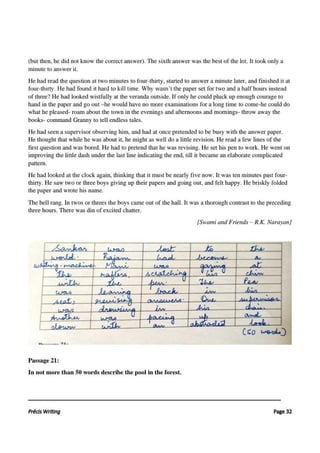 (but then, he did not know the correct answer). The sixth answer was the best of the lot. It took only a
minute to answer it.
He had read the question at two minutes to four-thirty, started to answer a minute later, and finished it at
four-thirty. He had found it hard to kill time. Why wasn't the paper set for two and a half hours instead
of three? He had looked wistfully at the veranda outside. If only he could pluck up enough courage to
hand in the paper and go out –he would have no more examinations for a long time to come-he could do
what he pleased- roam about the town in the evenings and afternoons and mornings- throw away the
books- command Granny to tell endless tales.
He had seen a supervisor observing him, and had at once pretended to be busy with the answer paper.
He thought that while he was about it, he might as well do a little revision. He read a few lines of the
first question and was bored. He had to pretend that he was revising. He set his pen to work. He went on
improving the little dash under the last line indicating the end, till it became an elaborate complicated
pattern.
He had looked at the clock again, thinking that it must be nearly five now. It was ten minutes past four-
thirty. He saw two or three boys giving up their papers and going out, and felt happy. He briskly folded
the paper and wrote his name.
The bell rang. In twos or threes the boys came out of the hall. It was a thorough contrast to the preceding
three hours. There was din of excited chatter.
[Swami and Friends – R.K. Narayan]
Sankar was lost to the
world. Rajam had become a
writing-machine. Mani was gazing at
the rafters, scratching his chin
with the pen. The Pea
was leaning back in his
seat, revising answers. One supervisor
was drowsing in his chair.
Another was pacing up and
down with an abstracted look.
(50 words)
Passage 21:
In not more than 50 words describe the pool in the forest.
Précis Writing Page 32